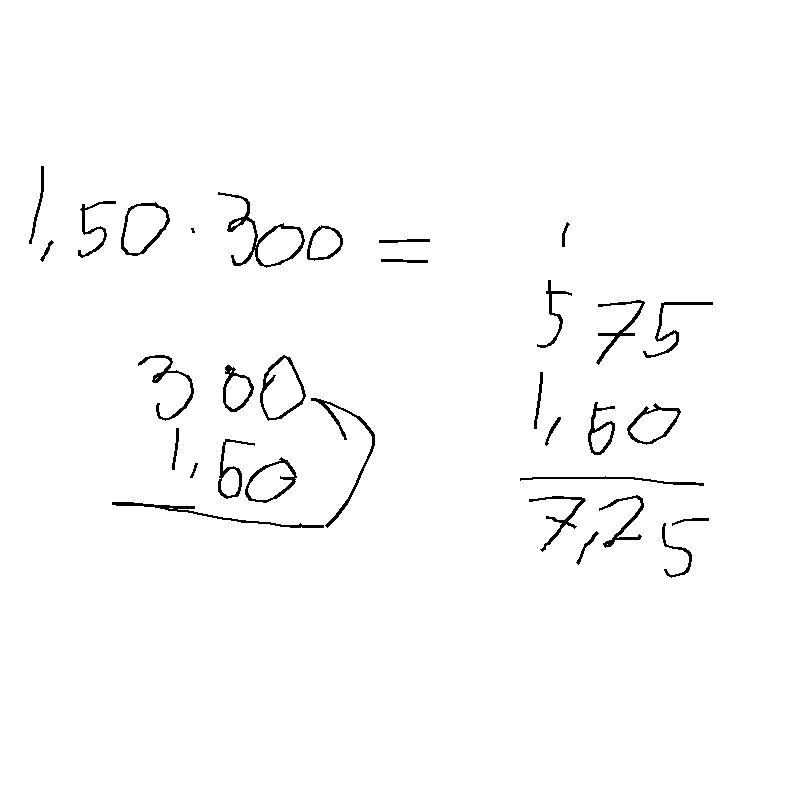 1,50 · 300 =
300
1,50
1
575
1,50
7,25